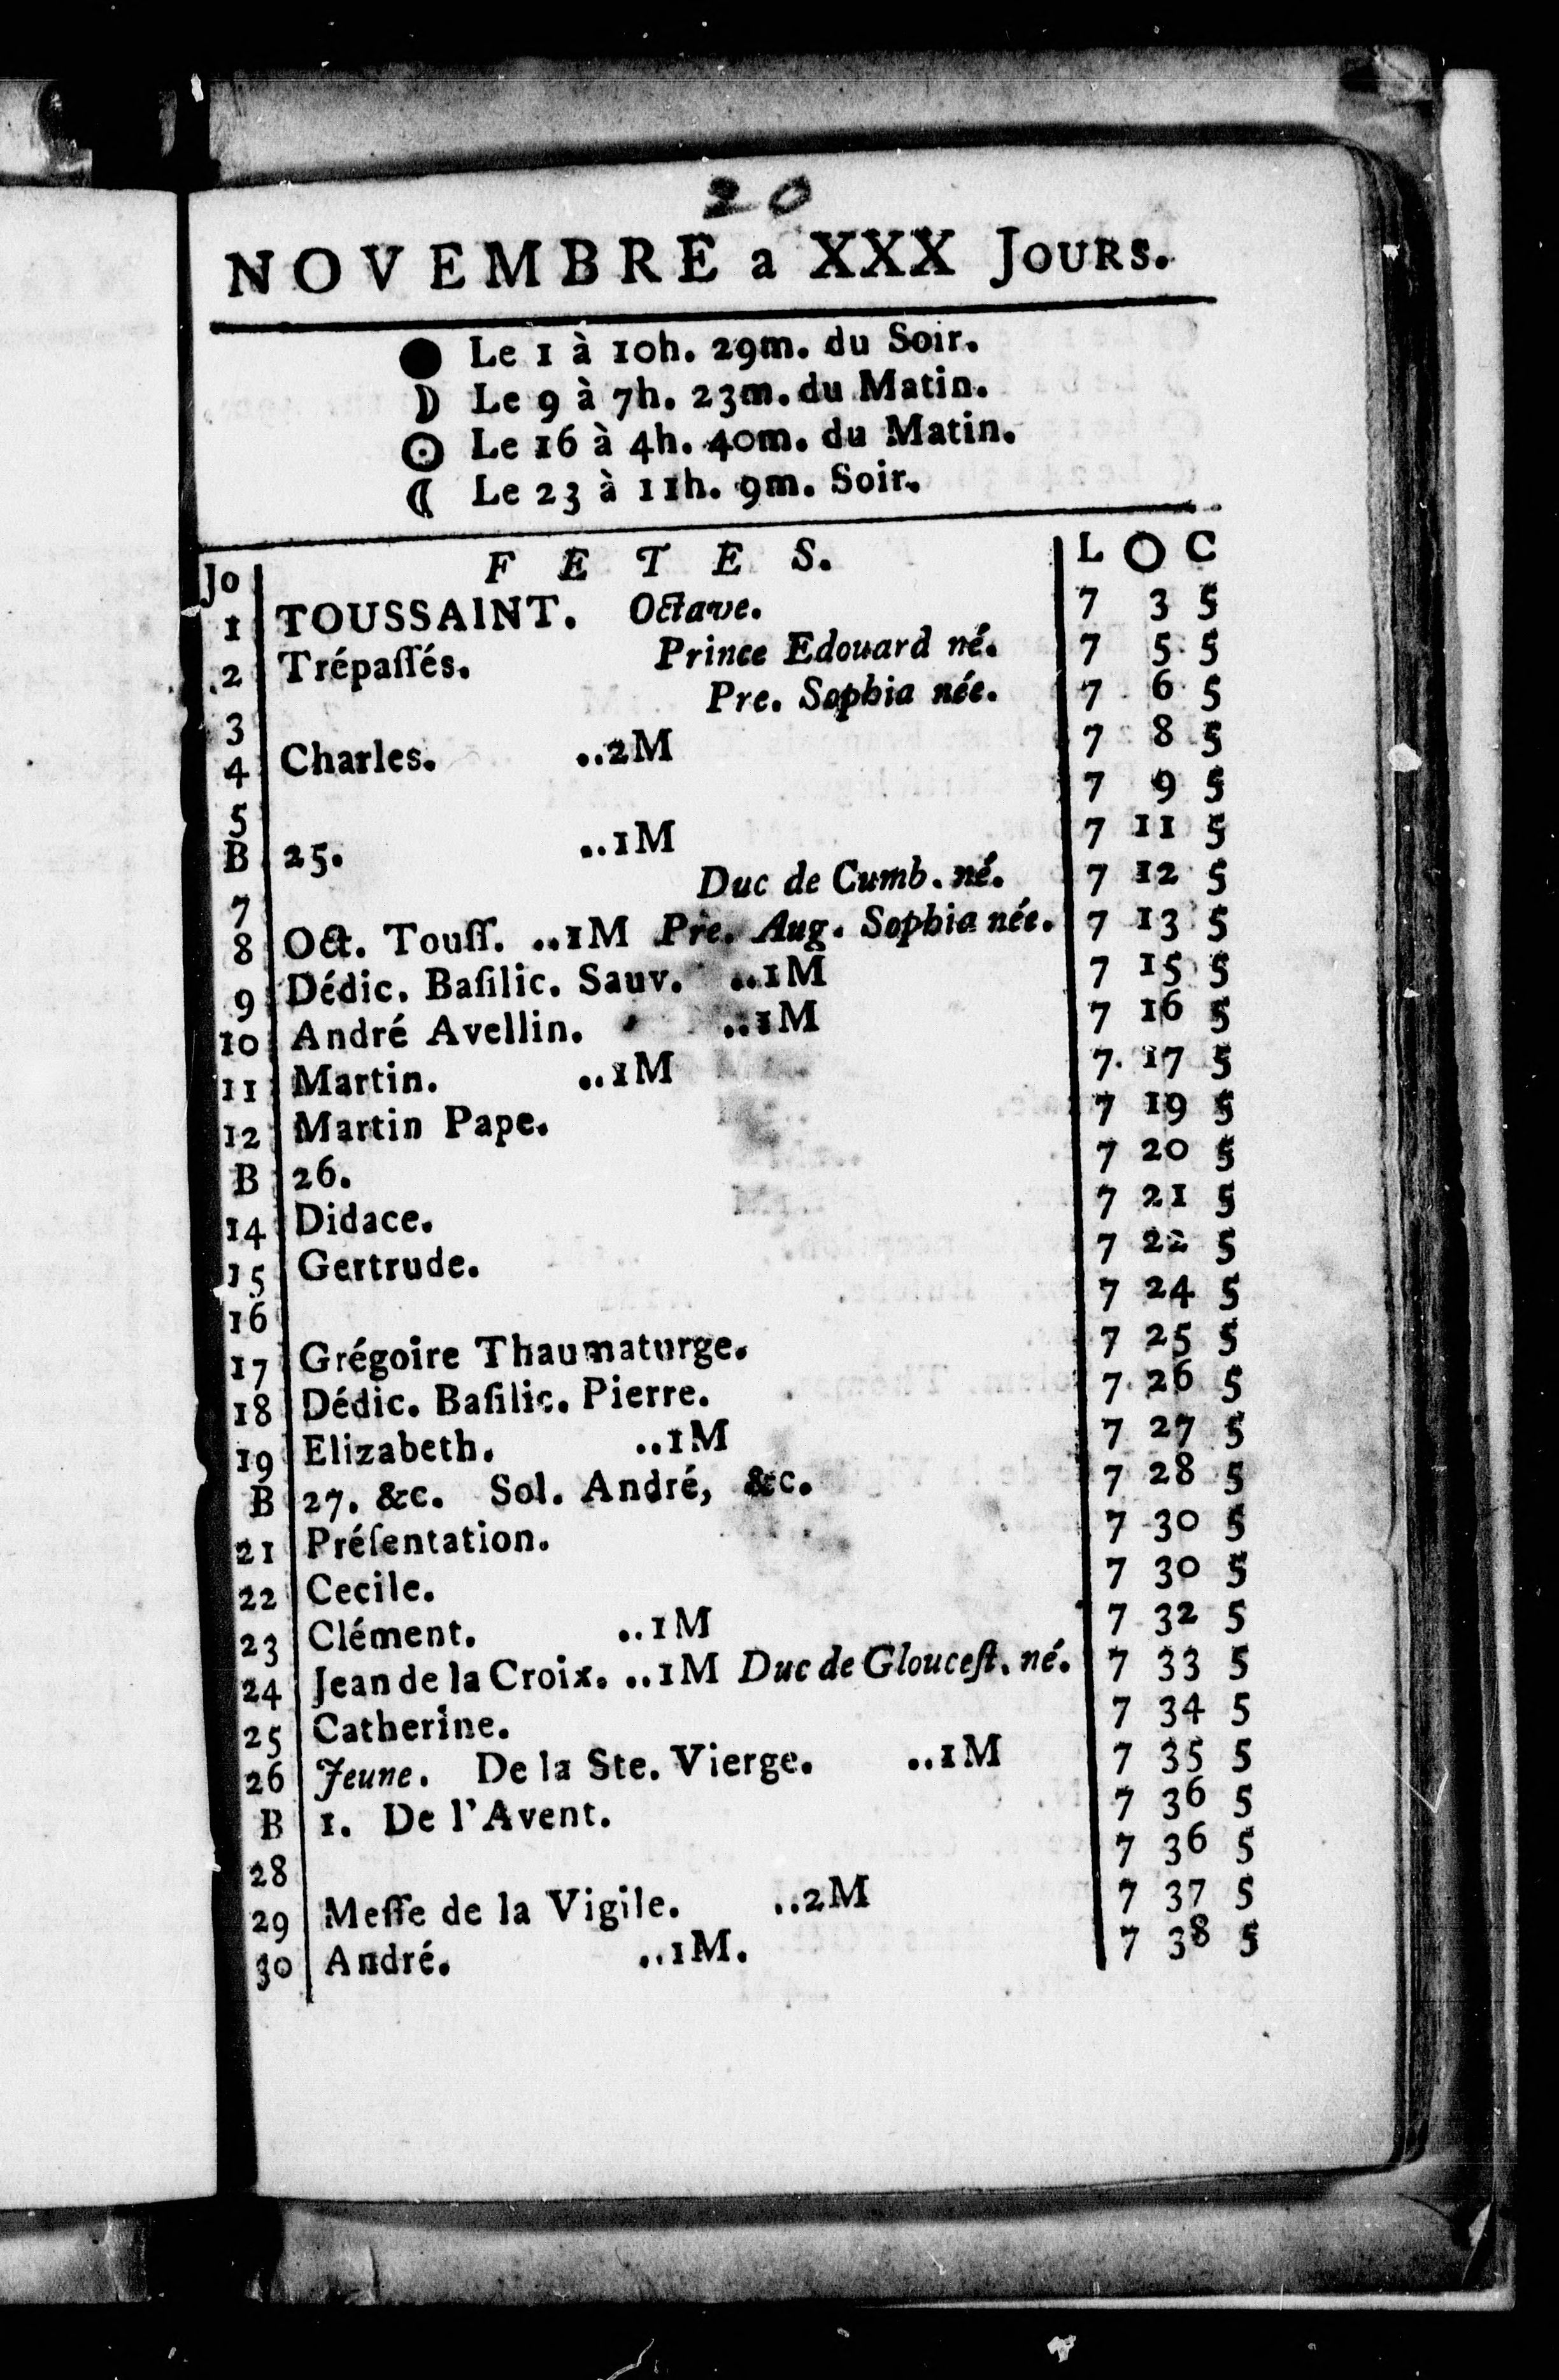 20
NOVEMBRE a XXX JOURS.
● Le 1 à 10h. 29m. du Soir.
☽ Le 9 à 7h. 23m. du Matin.
☉ Le 16 à 4h. 40m. du Matin.
☾ Le 23 à 11h. 9m. Soir.
Jo FETES. L O C
1 TOUSSAINT. Octave. 7 3 5
2 Trépaſſés. Prince Edouard né. 7 5 5
3 Pre. Sophia née. 7 6 5
4 Charles. ..2M 7 8 5
5 7 9 5
B 25. ..1M 7 11 5
7 Duc de Cumb. né. 7 12 5
8 Oct. Touſſ. ..1M Pre. Aug. Sophia née. 7 13 5
9 Dédic. Baſilic. Sauv. ..1M 7 15 5
10 André Avellin. ..1M 7 16 5
11 Martin. ..1M 7. 17 5
12 Martin Pape. 7 19 5
B 26. 7 20 5
14 Didace. 7 21 5
15 Gertrude. 7 22 5
16 7 24 5
17 Grégoire Thaumaturge. 7 25 5
18 Dédic. Baſilic. Pierre. 7 26 5
19 Elizabeth. ..1M 7 27 5
B 27. &c. Sol. André, &c. 7 28 5
21 Préſentation. 7 30 5
22 Cecile. 7 30 5
23 Clément. ..1M 7 32 5
24 Jean de la Croix. ..1M Duc de Glouceſt. né. 7 33 5
25 Catherine. 7 34 5
26 Jeune. De la Ste. Vierge. ..1M 7 35 5
B 1. De l'Avent. 7 36 5
28 7 36 5
29 Meſſe de la Vigile. ..2M 7 37 5
30 André. ..1M. 7 38 5